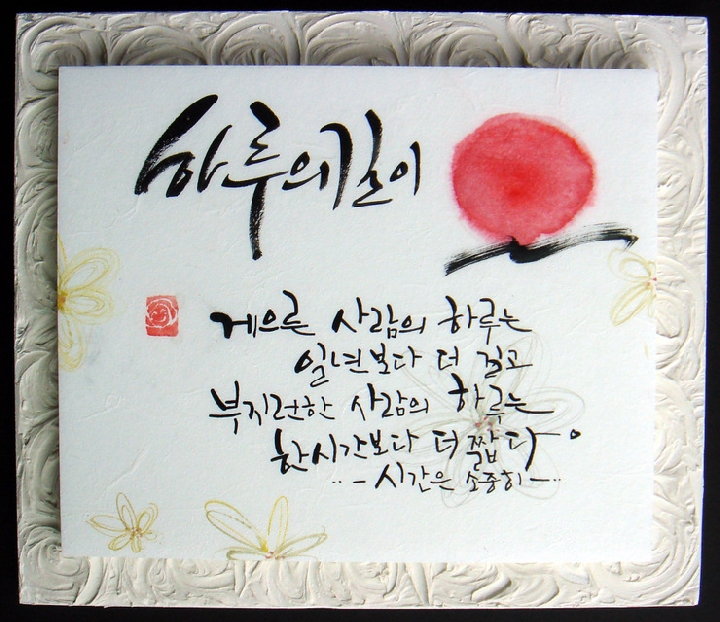 하루의 길이
게으른 사람의 하루는
일년보다 더 길고
부지런한 사람의 하루는
한시간보다 더 짧다。
··-시간은 소중히-··